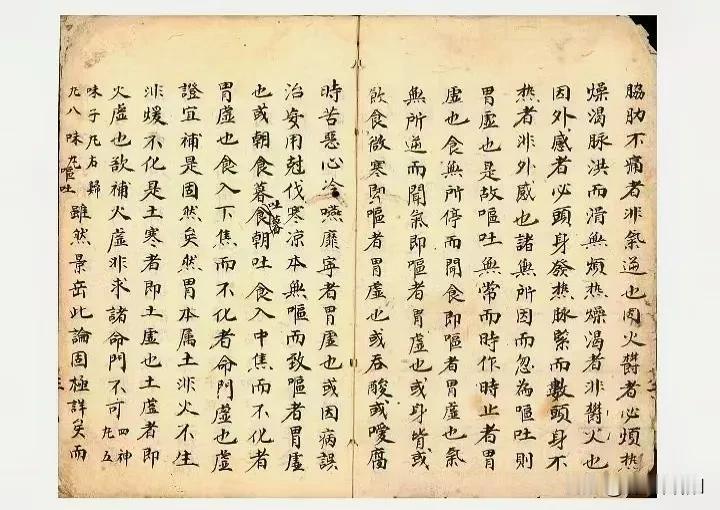 脇肋不痛者非氣逆也因火欝者必煩热
燥渴脉洪而滑無煩热燥渴者非欝火也
因外感者必頭身發热脉緊而數頭身不
热者非外感也諸無所因而忽為嘔吐則
胃虛也是故嘔吐無常而時作時止者胃
虛也食無所停而聞食即嘔者胃虛也氣
無所逆而聞氣即嘔者胃虛也或身背或
飲食微寒即嘔者胃虛也或吞酸或噯腐
時苦惡心冷嚥靡寧者胃虛也或因病誤
治妄用尅伐寒凉本無嘔而致嘔者胃虛
也或朝食暮食朝吐食入中焦而不化者
吐暮
胃虛也食入下焦而不化者命門虛也虛
證宜補是固然矣然胃本属土非火不生
非煖不化是土寒者即土虛也土虛者即
火虛也欲補火虛非求諸命門不可四神
丸五
味子丸右歸
丸八味丸嘔吐雖然景岳此論固極詳矣而